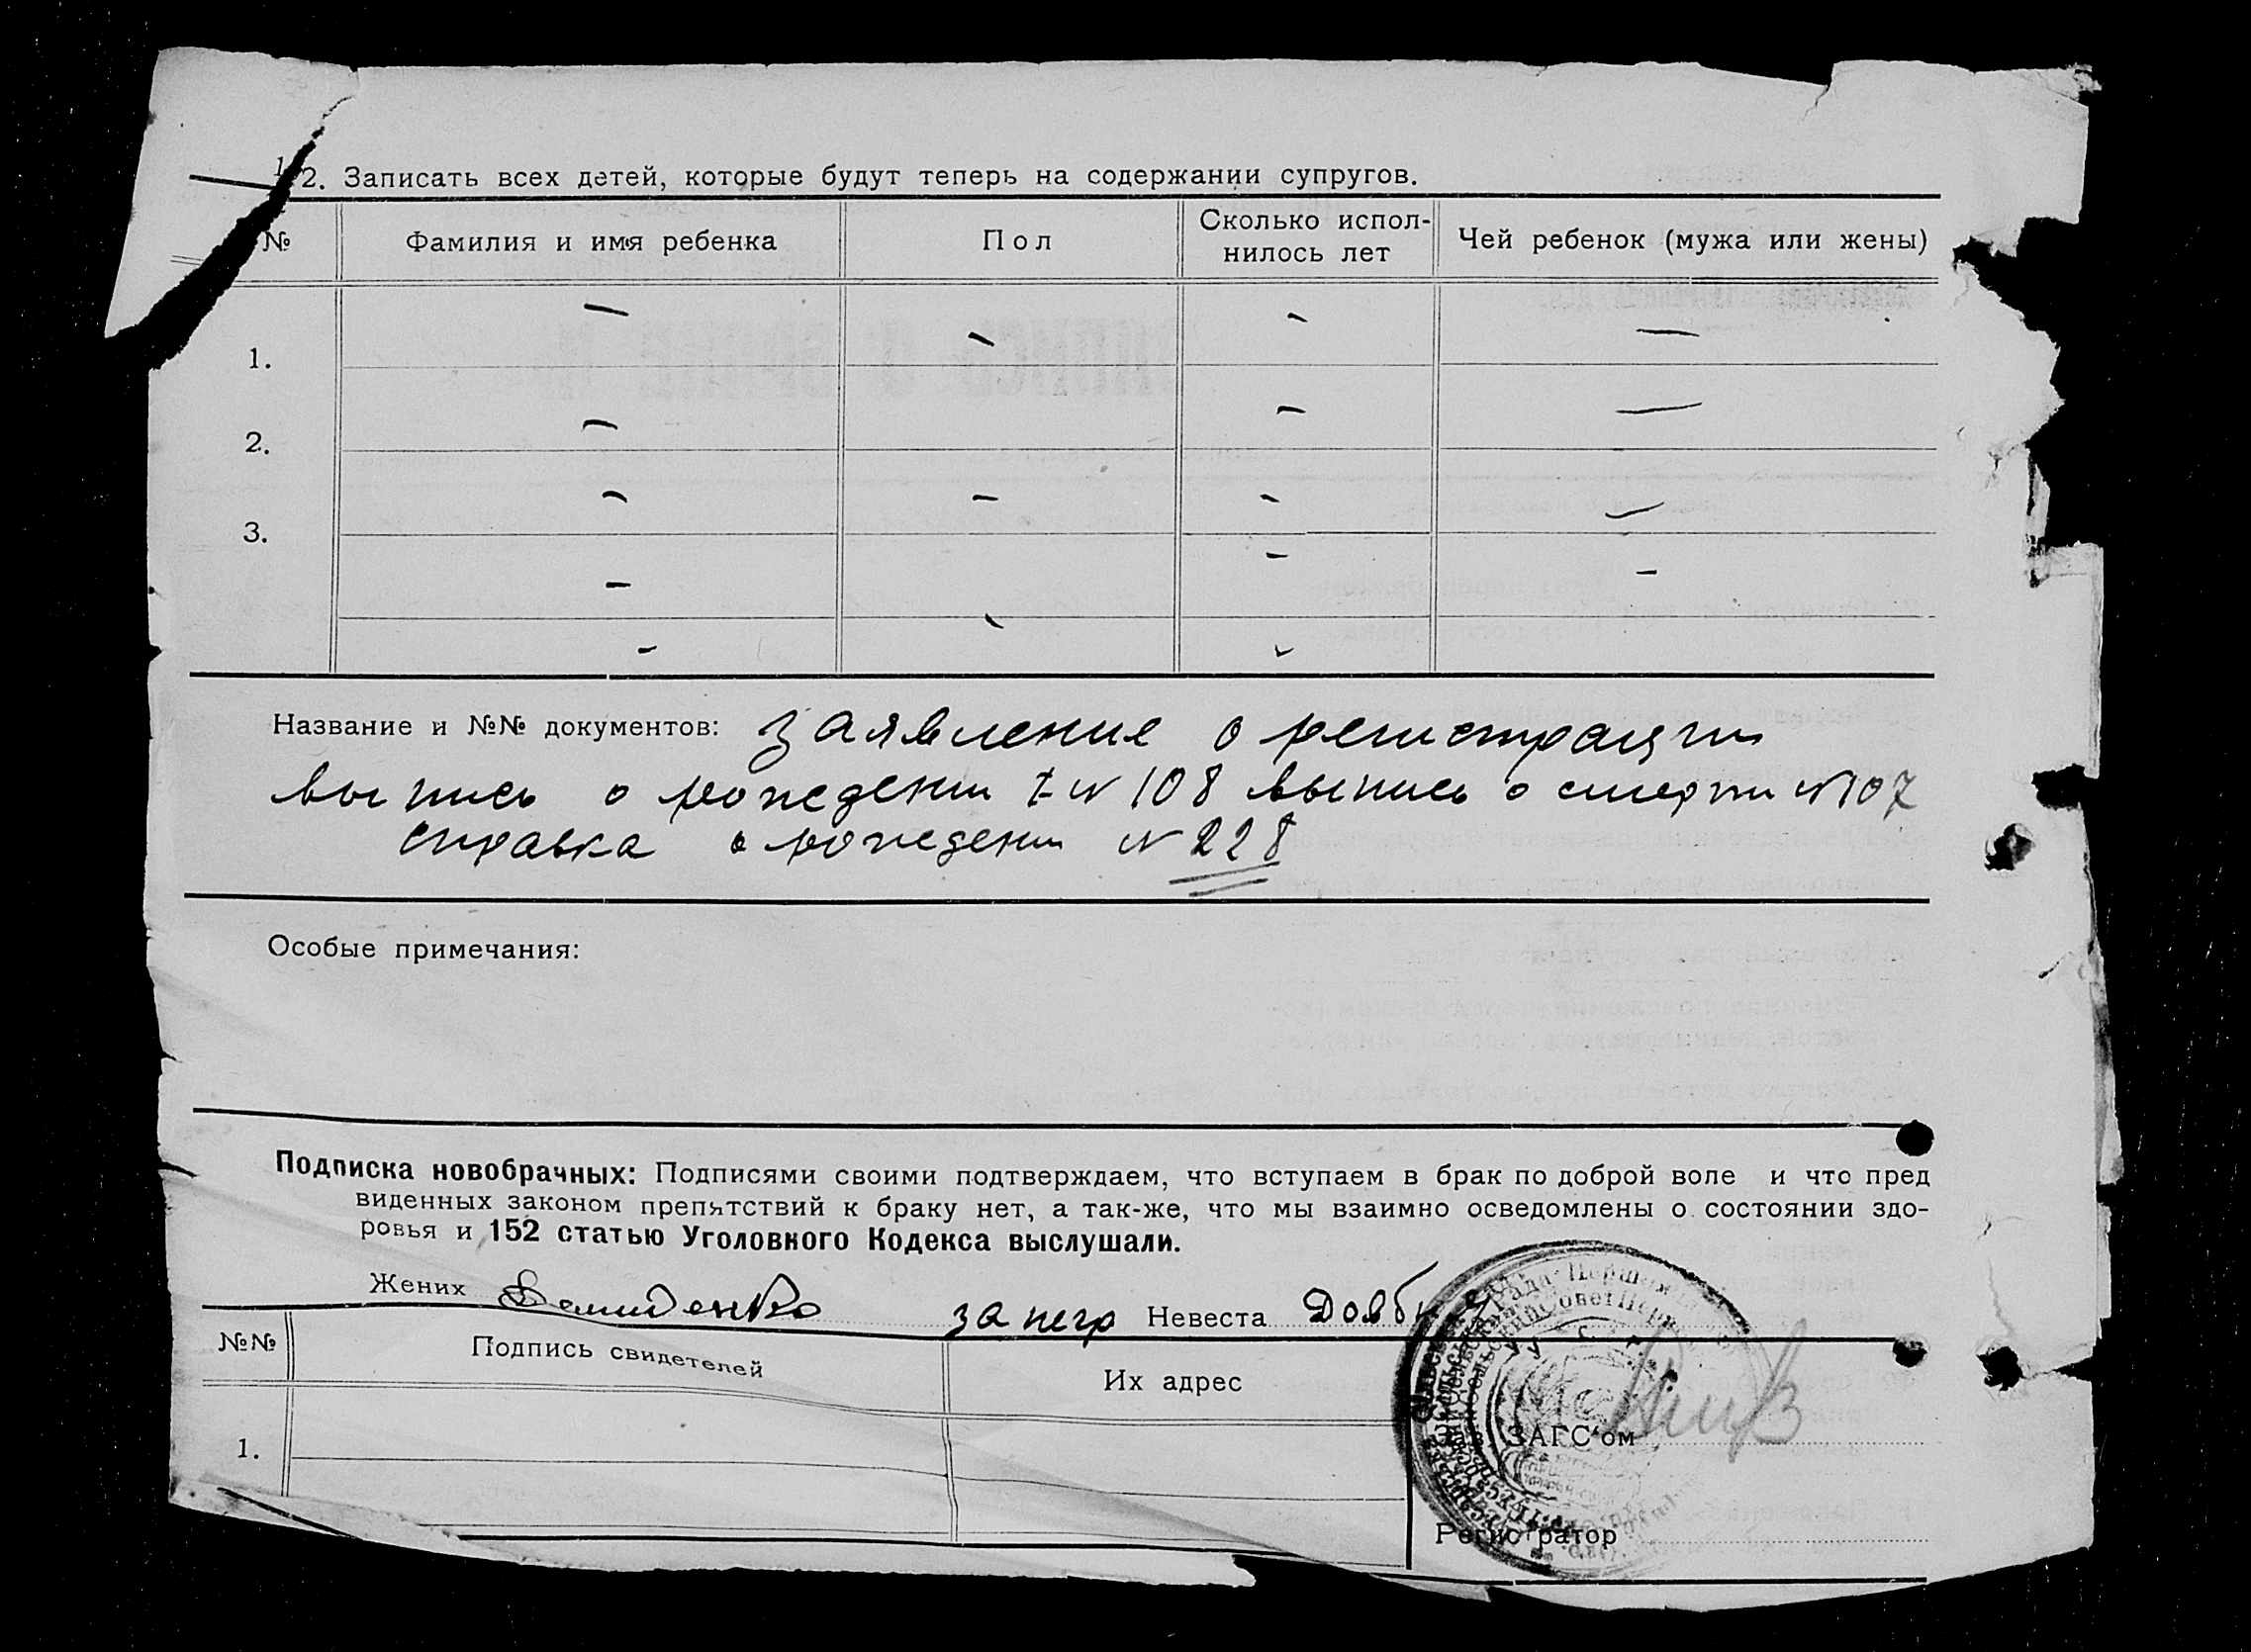 12. Записать всех детей, которые будут теперь на содержании супругов.
№ Фамилия и имя ребенка Пол Сколько испол-нилось лет Чей ребенок (мужа или жены)
1. — — — —
2. — — —
3. — — — —
— — —
— — —
Название и №№ документов: заявление о регистрации
выпись о рождении № 108 выпись о смерти №107
справка о рождении № 228
Особые примечания:
Подписка новобрачных: Подписями своими подтверждаем, что вступаем в брак по доброй воле и что пред
виденных законом препятствий к браку нет, а так-же, что мы взаимно осведомлены о состоянии здо-
ровья и 152 статью Уголовного Кодекса выслушали.
Жених Демиденко Невеста
№№ Подпись свидетелей Их адрес
1.
ЗАГС'ом
Регистратор